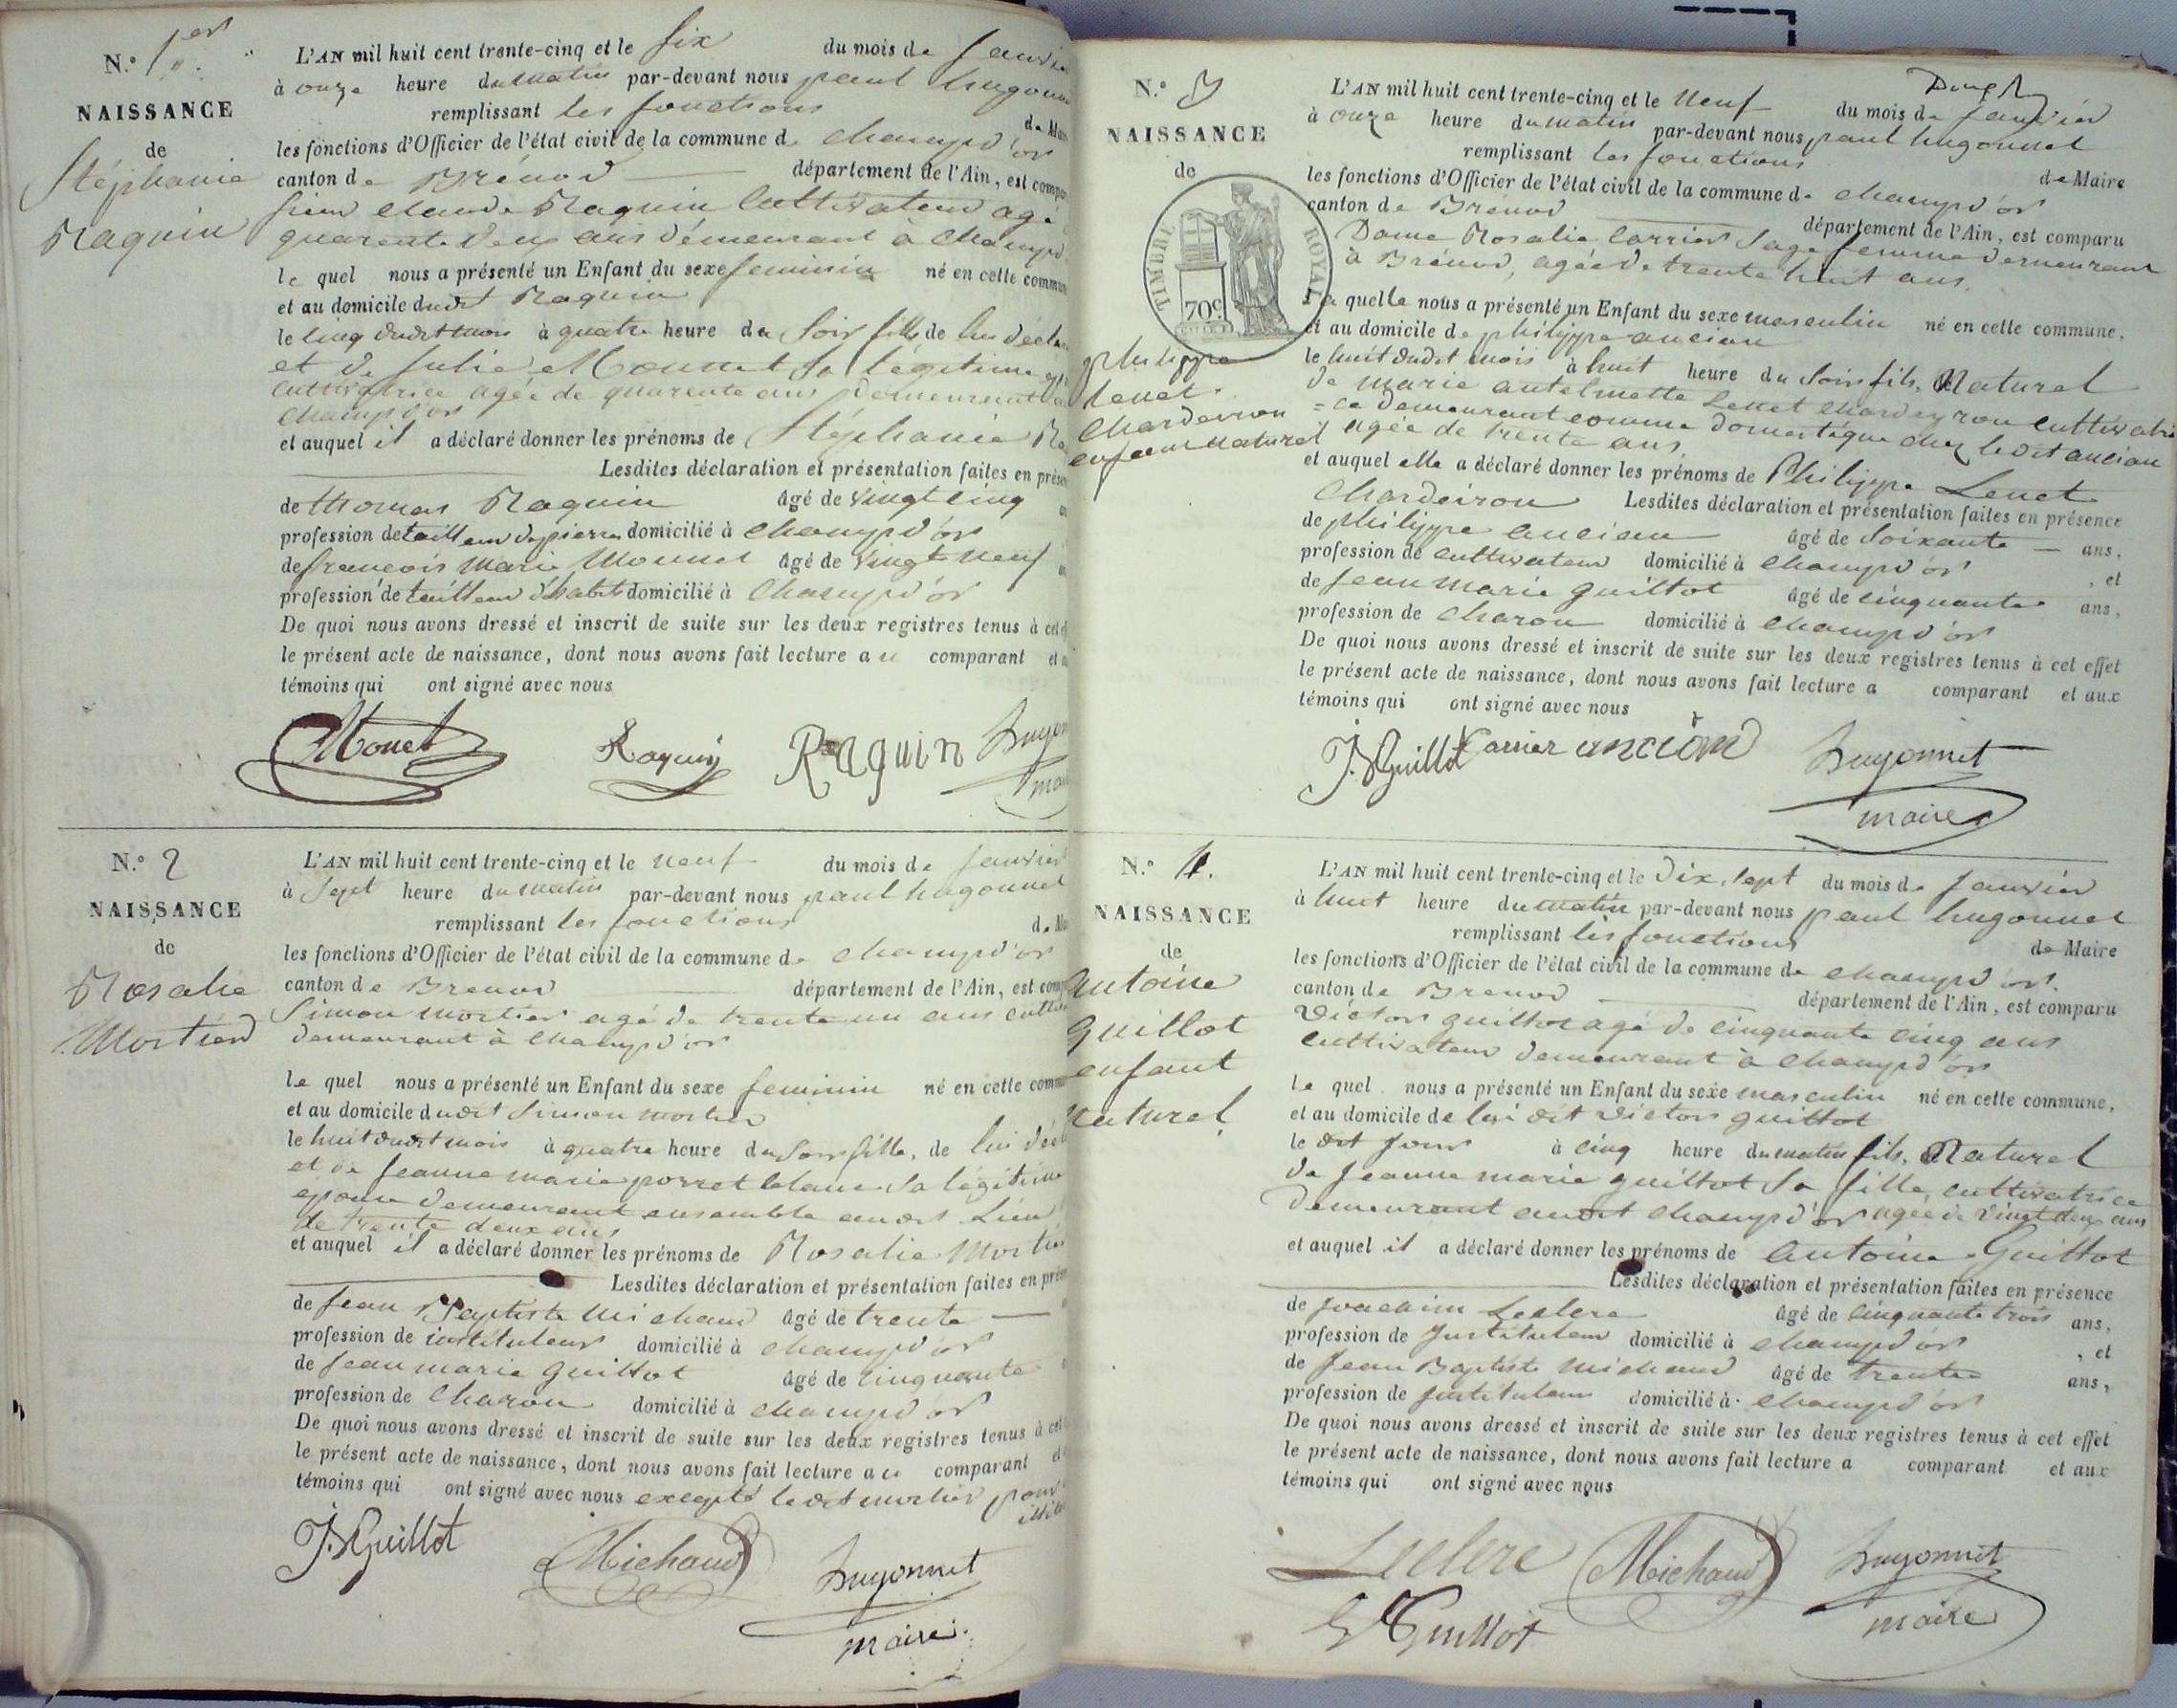 N.º 1.er
NAISSANCE
de
Stéphanie
Raquin
L'AN mil huit cent trente-cinq et le six du mois de Janvier
à onze heure du matin par-devant nous paul hugonnet
remplissant les fonctions de
les fonctions d'Officier de l'état civil de la commune de champd'or
canton de Brénod département de l'Ain, est
sieur claude Raquin Cultivateur agé
quarante deux ans démeurant à champd
le quel nous a présenté un Enfant du sexe feminin né en cette
et au domicile dudit Raquin
le cinq dudit mois à quatre heure du soir fille de lui
et de Julie Monnet sa légitime
cultivatrice agée de quarente ans demeurant
champd'or
et auquel il a déclaré donner les prénoms de Stéphanie
Lesdites déclaration et présentation faites en
de thomas Raquin âgé de vingt cinq
profession de tailleur de pierres domicilié à champd'or
de francois Marie Monnet âgé de vingt neuf
profession de tailleur d'habit domicilié à champd'or
De quoi nous avons dressé et inscrit de suite sur les deux registres tenus à cet
le présent acte de naissance, dont nous avons fait lecture au comparant et
témoins qui ont signé avec nous
Monet Raquin Raquin hugonnet
N.º 2
NAISSANCE
de
Rosalie
Mortier
L'AN mil huit cent trente-cinq et le neuf du mois de Janvier
à sept heure du matin par-devant nous paul hugonnet
remplissant les fonctions de
les fonctions d'Officier de l'état civil de la commune de champd'or
canton de Brenod département de l'Ain, est
Simon mortier agé de trente un ans
demeurant à champd'or
le quel nous a présenté un Enfant du sexe feminin né en cette
et au domicile dudit Simon mortier
le huit dudit mois à quatre heure du soir fille, de lui
et de Jeanne marie porret blanc sa légitime
epouse demeurant ensemble audit Lieu
de trente deux ans
et auquel il a déclaré donner les prénoms de Rosalie Mortier
Lesdites déclaration et présentation faites en
de Jean Baptiste Michaud âgé de trente
profession de instituteur domicilié à champd'or
de Jean marie Guillot âgé de cinquante
profession de charon domicilié à champd'or
De quoi nous avons dressé et inscrit de suite sur les deux registres tenus à cet
le présent acte de naissance, dont nous avons fait lecture au comparant et
témoins qui ont signé avec nous excepté ledit mortier pour
J. M Guillot Michaud hugonnet
maire
N.º 3
NAISSANCE
de
TIMBRE ROYAL
70c
philippe
Lenet
Chardeiron
enfant naturel
L'AN mil huit cent trente-cinq et le neuf du mois de Janvier
à onze heure du matin par-devant nous paul hugonnet
remplissant les fonctions de Maire
les fonctions d'Officier de l'état civil de la commune de champd'or
canton de Brénod département de l'Ain, est comparu
Dame Rosalie Carrier sage femme demeurant
à Brénod, agée de trente huit ans.
La quelle nous a présenté un Enfant du sexe masculin né en cette commune,
et au domicile de philippe ancian
le huit dudit mois à huit heure du soir fils, Naturel
de marie antelmette Lenet chardeyron cultivatri
=ce demeurant comme domestique chez ledit ancian
agée de trente ans
et auquel elle a déclaré donner les prénoms de Philippe Lenet
Chardeiron Lesdites déclaration et présentation faites en présence
de philippe ancian âgé de soixante ans,
profession de cultivateur domicilié à champd'or , et
de Jean marie guillot âgé de cinquante ans,
profession de charon domicilié à champd'or
De quoi nous avons dressé et inscrit de suite sur les deux registres tenus à cet effet
le présent acte de naissance, dont nous avons fait lecture a comparant et aux
témoins qui ont signé avec nous
J. M Guillot Carrier ancian hugonnet
maire
N.º 4.
NAISSANCE
de
Antoine
Guillot
enfant
naturel
L'AN mil huit cent trente-cinq et le dix sept du mois de Janvier
à huit heure du matin par-devant nous paul hugonnet
remplissant les fonctions de Maire
les fonctions d'Officier de l'état civil de la commune de champd'or
canton de Brenod département de l'Ain, est comparu
Victor guillot agé de cinquante cinq ans
cultivateur demeurant à champd'or
le quel nous a présenté un Enfant du sexe masculin né en cette commune,
et au domicile de lui dit victor guillot
le dit jour à cinq heure du matin fils, Naturel
de Jeanne marie guillot sa fille, cultivatrice
demeurant audit champd'or agée de vingt deux ans
et auquel il a déclaré donner les prénoms de antoine Guillot
Lesdites déclaration et présentation faites en présence
de Joachim Leclerc âgé de cinquante trois ans,
profession de Instituteur domicilié à champd'or , et
de Jean Baptiste Michaud âgé de trente ans,
profession de Instituteur domicilié à champd'or
De quoi nous avons dressé et inscrit de suite sur les deux registres tenus à cet effet
le présent acte de naissance, dont nous avons fait lecture a comparant et aux
témoins qui ont signé avec nous
Leclerc Michaud hugonnet
Guillot maire